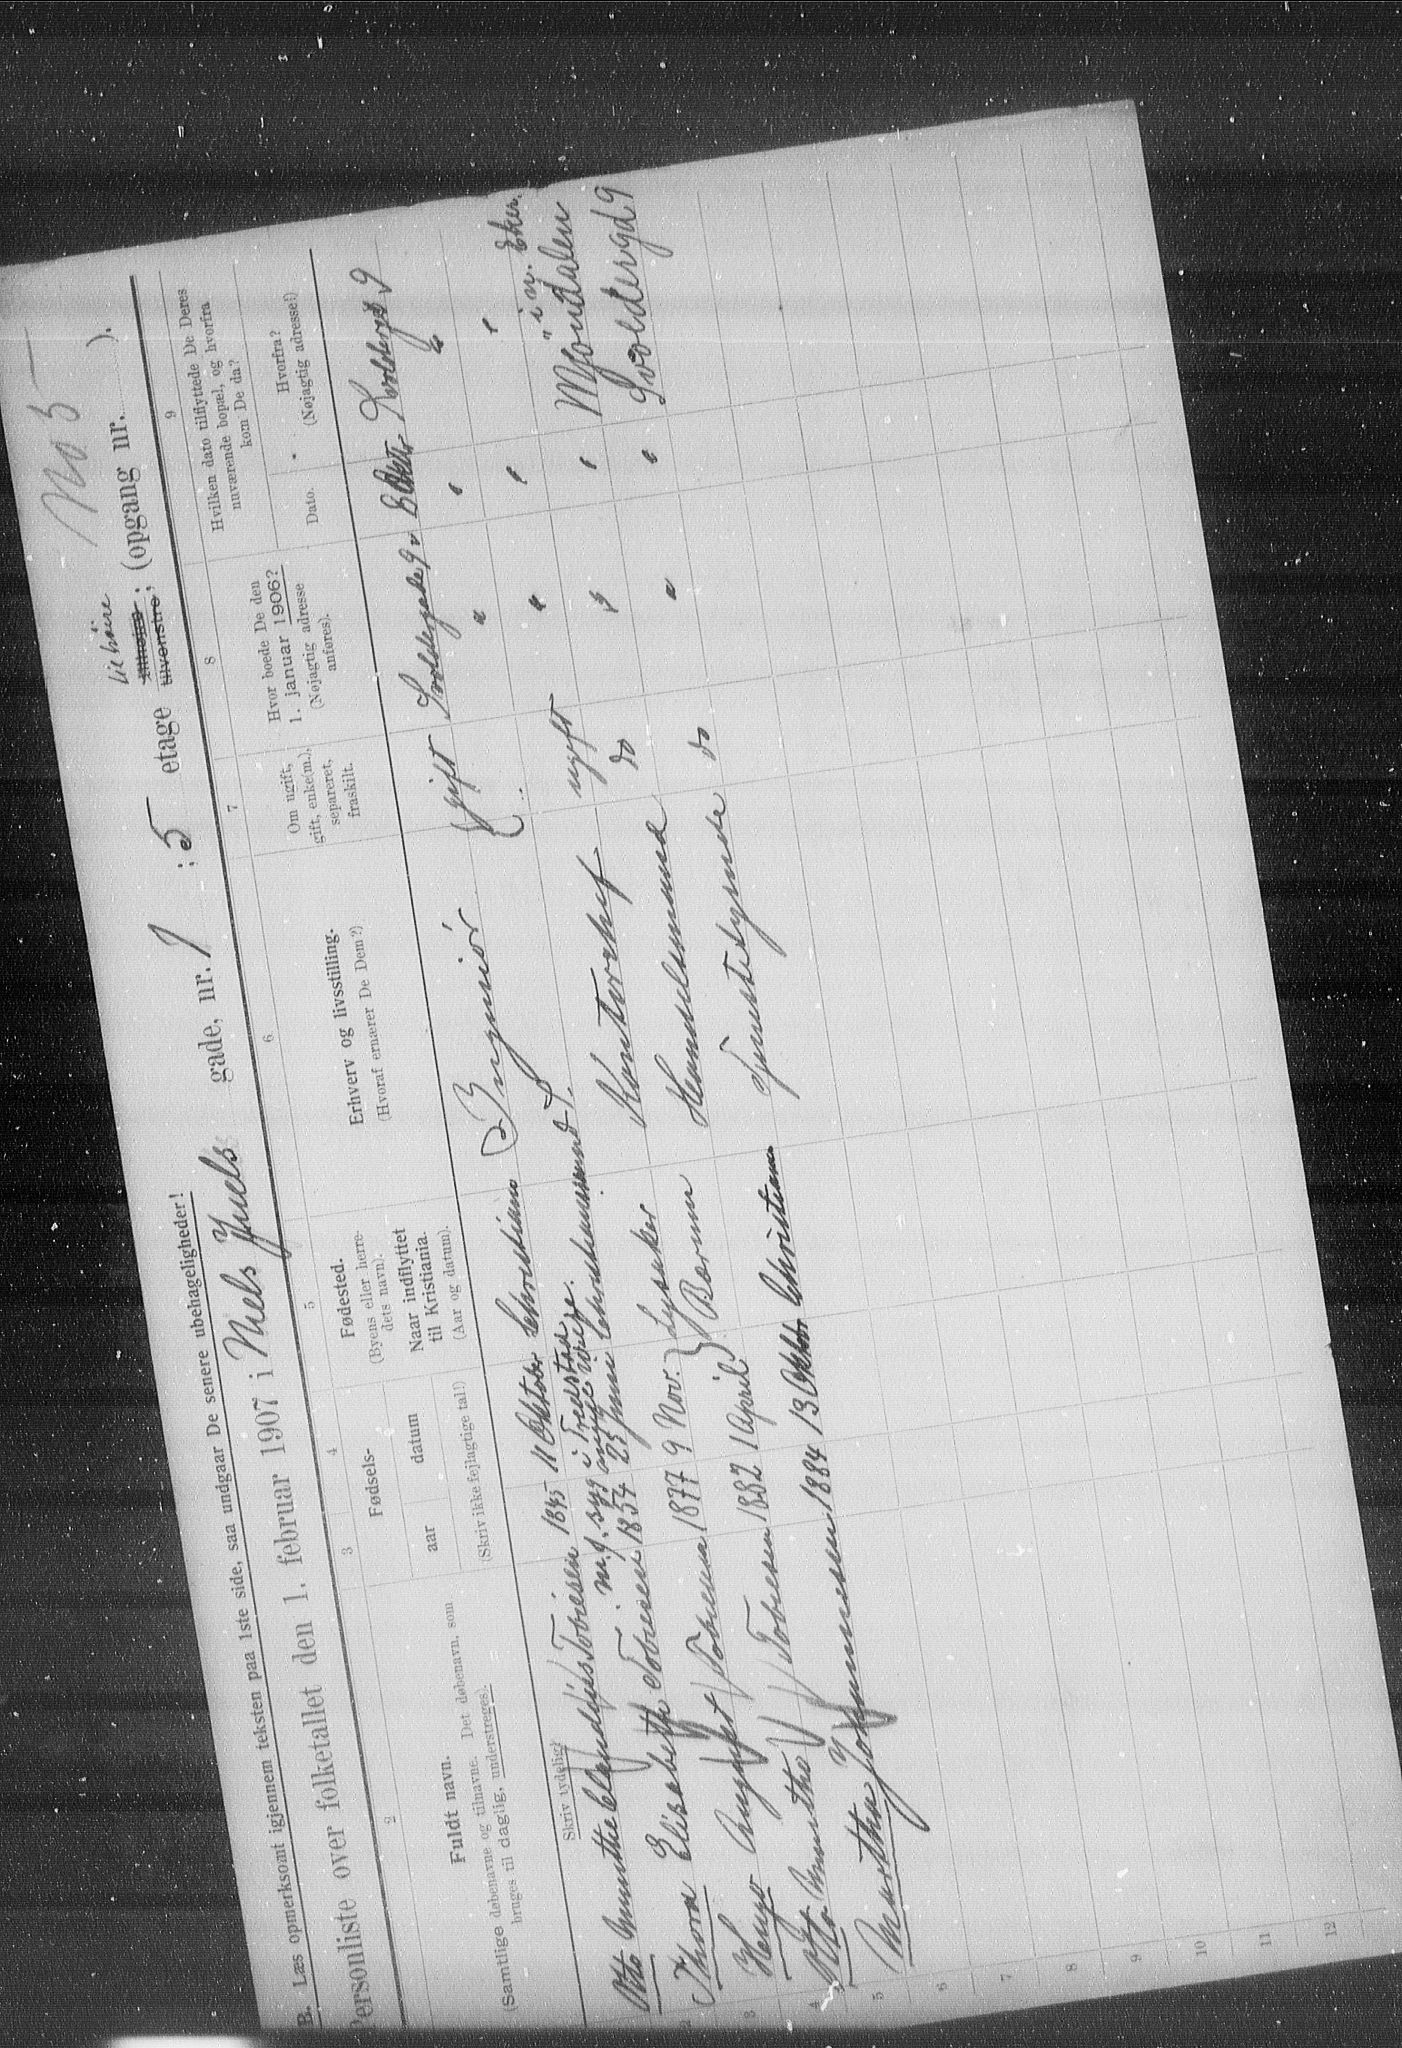 No 5
B. Læs opmerksomt igjennem teksten paa 1ste side, saa undgaar De senere ubehageligheder!
Personliste over folketallet den 1. februar 1907 i Niels Juels gade, nr. 1 ; 5 etage tilhøire; tilvenstre; (opgang nr. ).
til høire
2
3
4
5
6
7
8
9
Fuldt navn.
(Samtlige døbenavne og tilnavne. Det døbenavn, som
bruges til daglig, understreges).
Skriv tydelig!
Fødsels-
aar
datum
(Skriv ikke fejlagtige tal!)
Fødested.
(Byens eller herre-
dets navn).
Naar indflyttet
til Kristiania.
(Aar og datum).
Erhverv og livsstilling.
(Hvoraf ernærer De Dem?)
Om ugift,
gift, enke(m.),
separeret,
fraskilt.
Hvor boede De den
1. januar 1906?
(Nøjagtig adresse
anføres).
Hvilken dato tilflyttede De Deres
nuværende bopæl, og hvorfra
kom De da?
Dato.
Hvorfra?
(Nøjagtig adresse!)
Otto Munthe Tobiesen 1845 11 Oktober Christiania Ingeniör gift Svoldergade 9 Svoldergd 9
m. f. syg i
2 Thora Elisabeth Tobiesen 1854 25 Juni Christiania " " "
3 Hugo August Tobiesen 1877 9 Nov. Lysaker Kontorchef ugift " " Mjöndalen
" i n. Eker.
4 Otto Munthe Tobiesen 1882 1 April Bærum Handelsmand do " " Svoldergd 9
5 Martha Johannesen 1884 13 Oktbr Christiania Tjenestetjener do
6
7
8
9
10
11
12